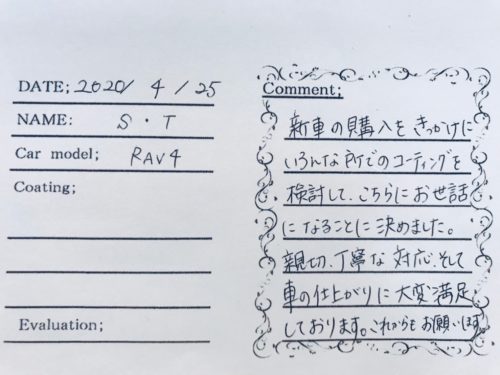 DATE; 2020/ 4 / 25
NAME: S・T
Car model; RAV4
Coating;
Evaluation;
Comment;
新車の購入をきっかけに
いろんな所でのコーティングを
検討して、こちらにお世話
になることに決めました。
親切、丁寧な対応、そして
車の仕上がりに大変満足
しております。これからもお願いします。